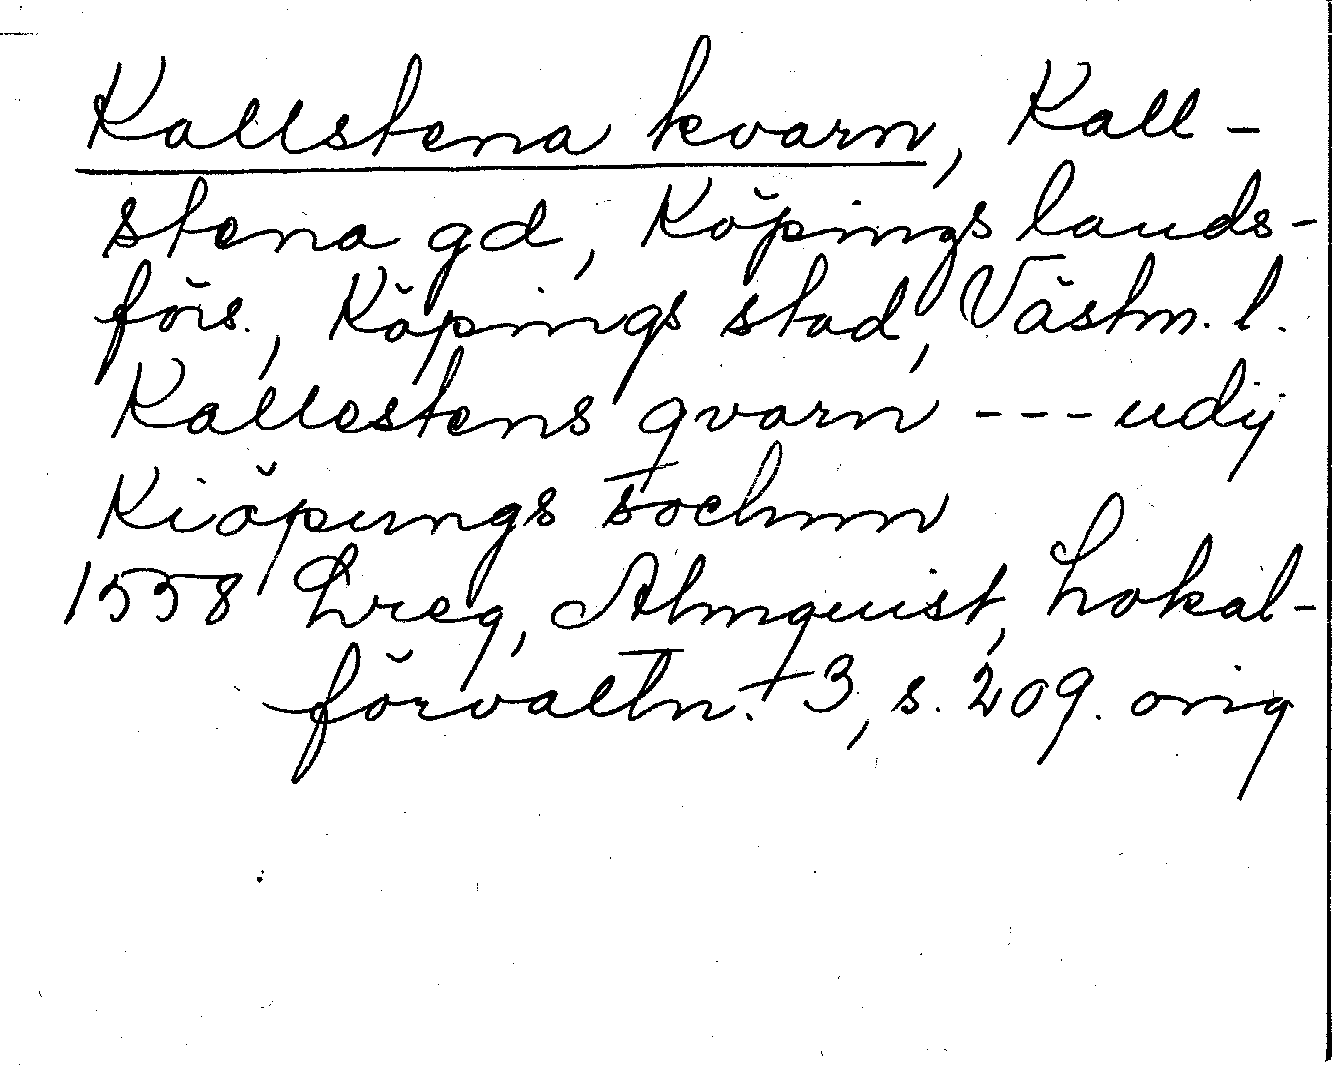 Kallstena kvarn, Kall-
stena gd, Köpings lands-
förs., Köpings stad, Västm. l.
Kallestens qvarn --- udij
Kiöpungs sochnn
1558 Lreg, Almquist, Lokal-
förvaltn. 3, s. 209. orig